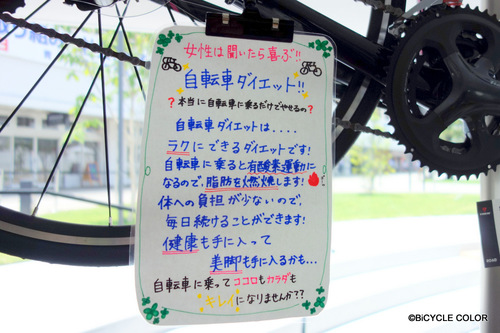 女性は聞いたら喜ぶ!!
自転車ダイエット!!
?本当に自転車に乗るだけでやせるの?
自転車ダイエットは....
ラクにできるダイエットです!
自転車に乗ると有酸素運動に
なるので、脂肪を燃焼します!
体への負担が少ないので、
毎日続けることができます!
健康も手に入って
美脚も手に入るかも...
自転車に乗ってココロもカラダも
キレイになりませんか??
©BiCYCLE COLOR